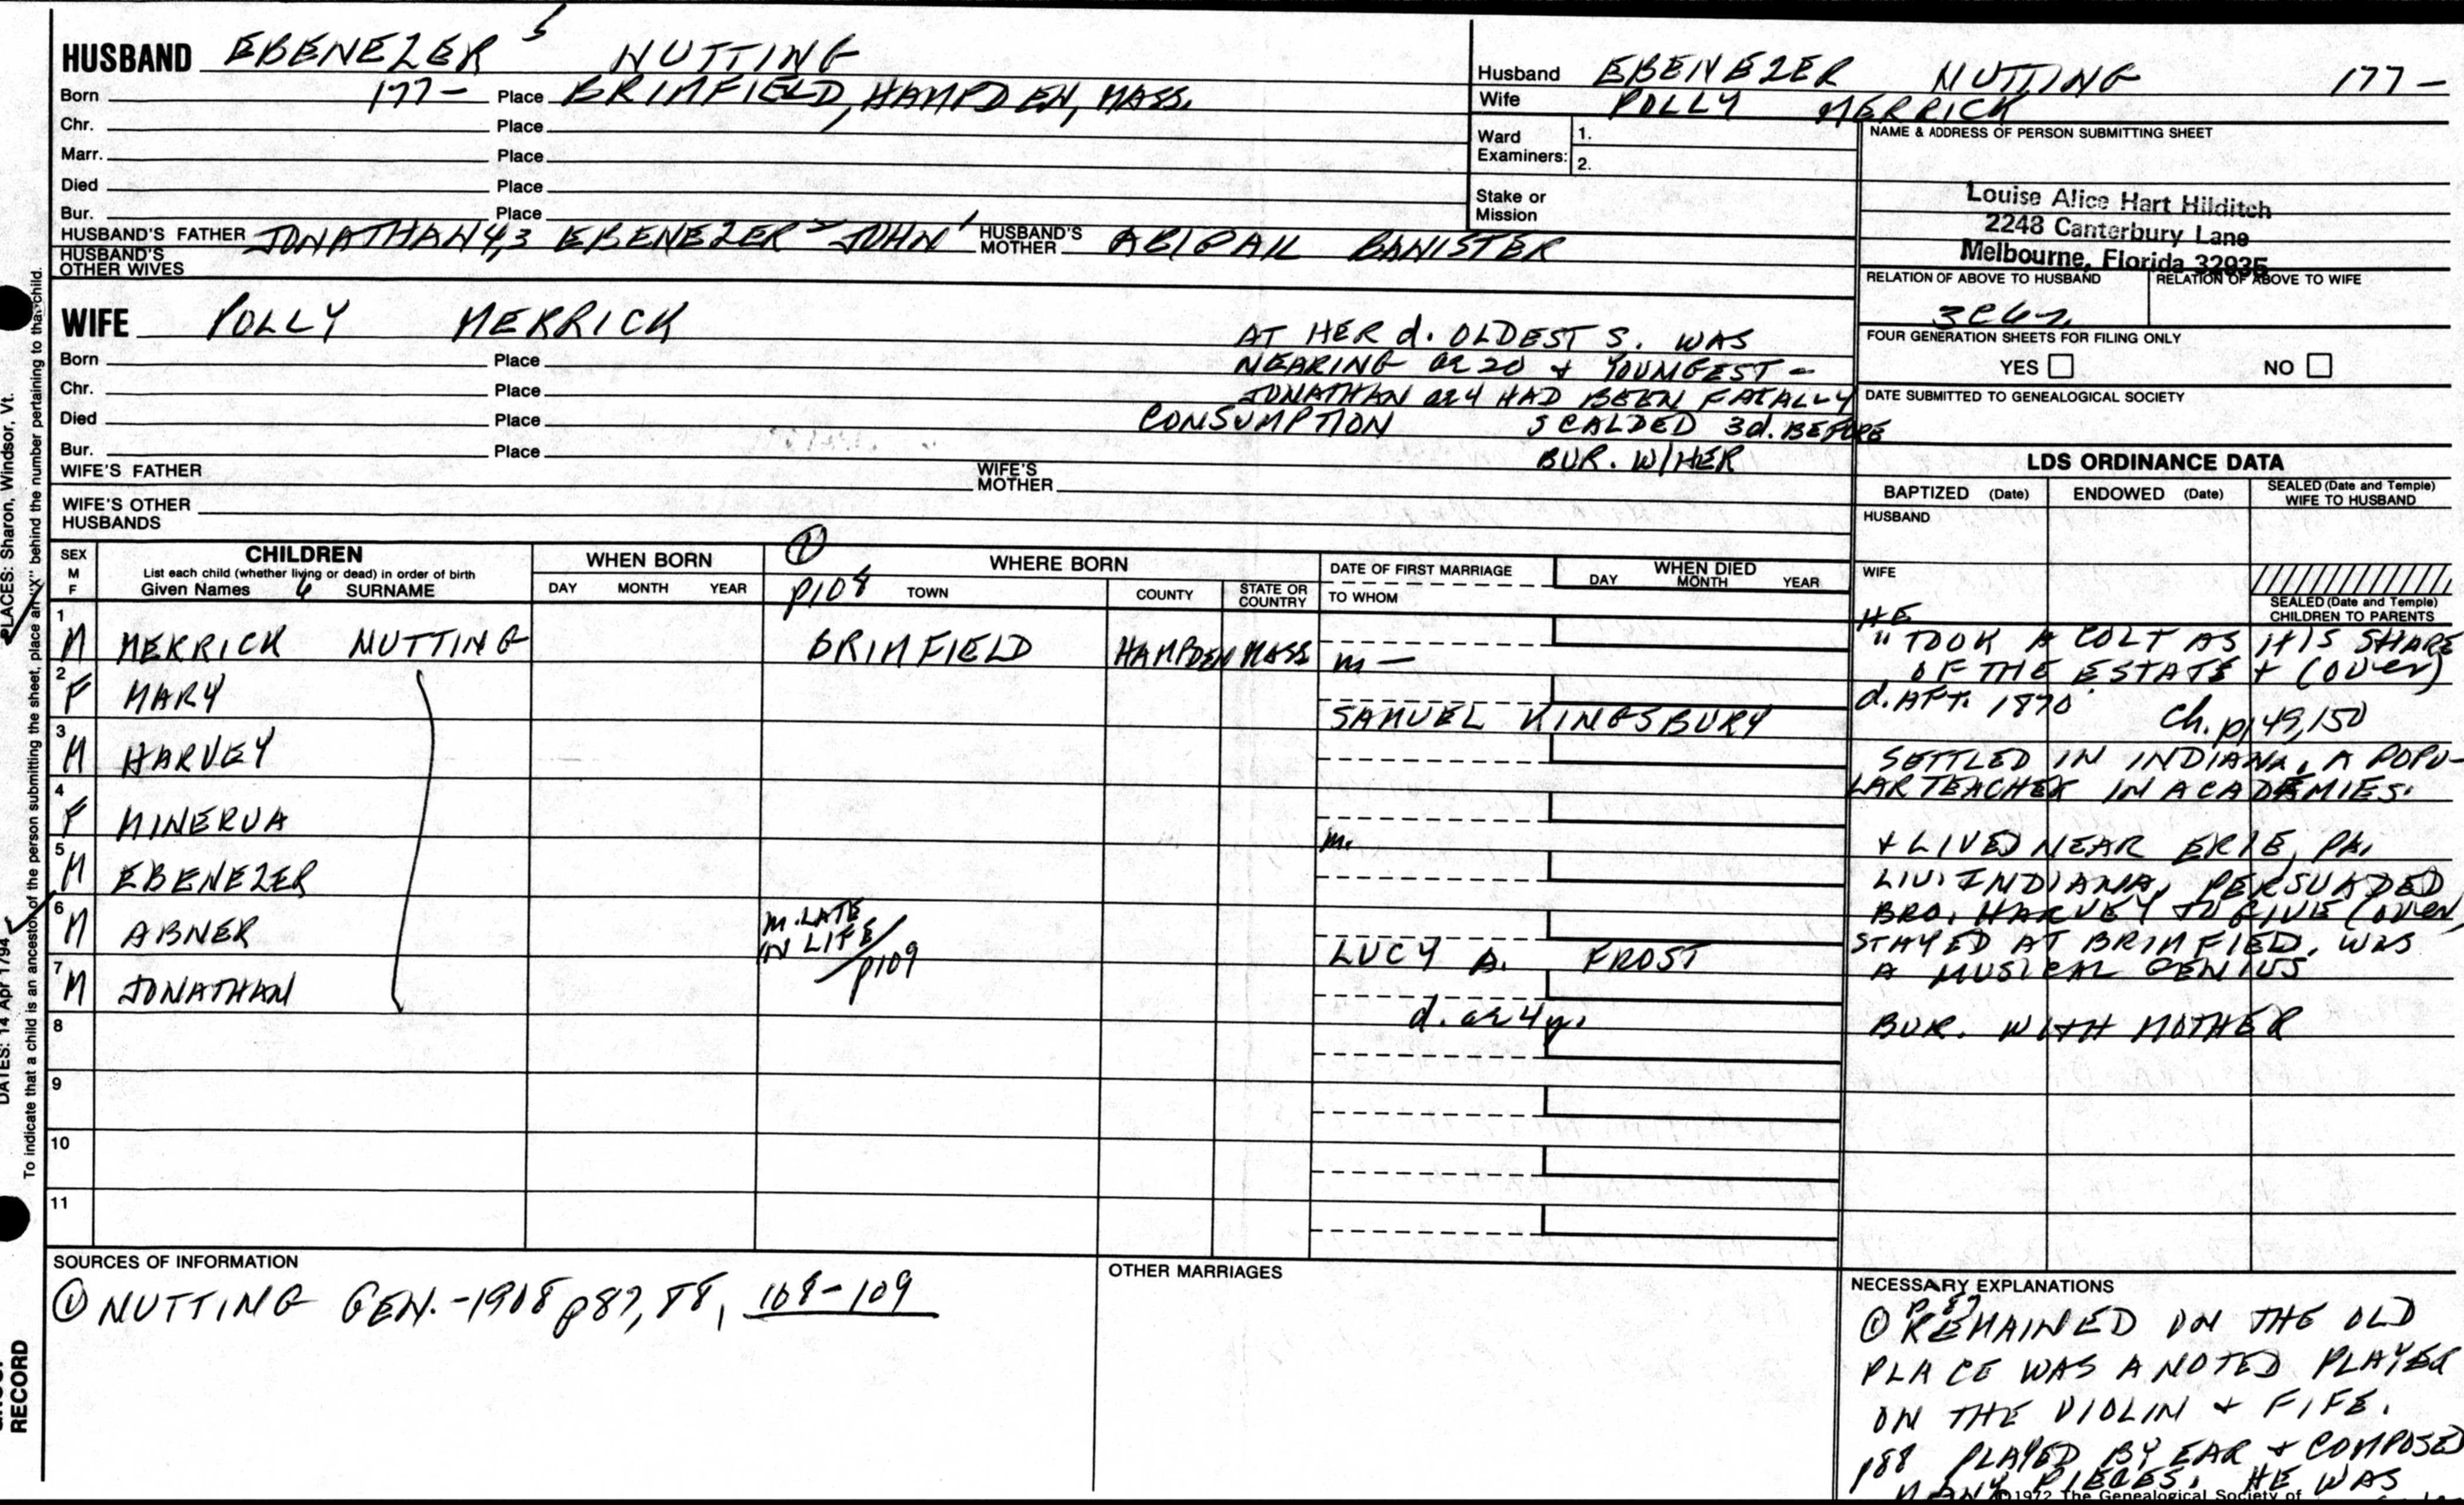 HUSBAND EBENEZER 5 NUTTING
Born 177- Place BRIMFIELD, HAMPDEN, MASS.
Chr. Place
Marr. Place
Died Place
Bur. Place
HUSBAND'S FATHER JONATHAN 4,3 EBENEZER 2 JOHN 1 HUSBAND'S MOTHER ABIGAIL BANISTER
HUSBAND'S OTHER WIVES
Husband EBENEZER NUTTING 177-
Wife POLLY MERRICK
Ward Examiners: 1.
2.
Stake or Mission
NAME & ADDRESS OF PERSON SUBMITTING SHEET
Louise Alice Hart Hilditch
2248 Canterbury Lane
Melbourne, Florida 32935
RELATION OF ABOVE TO HUSBAND RELATION OF ABOVE TO WIFE
FOUR GENERATION SHEETS FOR FILING ONLY
YES NO
DATE SUBMITTED TO GENEALOGICAL SOCIETY
WIFE POLLY MERRICK
Born Place
Chr. Place
Died Place CONSUMPTION
Bur. Place
AT HER d. OLDEST S. WAS
NEARING ae 20 + YOUNGEST -
JONATHAN ae 4 HAD BEEN FATALLY
SCALDED 3d. BEFORE
BUR. W/HER
WIFE'S FATHER WIFE'S MOTHER
WIFE'S OTHER HUSBANDS
LDS ORDINANCE DATA
BAPTIZED (Date) ENDOWED (Date) SEALED (Date and Temple) WIFE TO HUSBAND
HUSBAND
WIFE
SEALED (Date and Temple) CHILDREN TO PARENTS
SEX M F
CHILDREN
List each child (whether living or dead) in order of birth
Given Names 6 SURNAME
WHEN BORN
DAY MONTH YEAR
① p108
WHERE BORN
TOWN COUNTY STATE OR COUNTRY
DATE OF FIRST MARRIAGE
TO WHOM
WHEN DIED
DAY MONTH YEAR
1 M MERRICK NUTTING BRIMFIELD HAMPDEN MASS m -
HE
"TOOK A COLT AS HIS SHARE
OF THE ESTATE + (over)
2 F MARY SAMUEL KINGSBURY
d. AFT. 1870 Ch. p149,150
3 M HARVEY
SETTLED IN INDIANA, A POPU-
LAR TEACHER IN ACADEMIES.
4 F MINERVA m.
+ LIVED NEAR ERIE, PA.
5 M EBENEZER
LIV. INDIANA, PERSUADED
BRO. HARVEY TO GIVE (over)
6 M ABNER M. LATE IN LIFE / p109 LUCY A. FROST
STAYED AT BRIMFIELD, WAS
A MUSICAL GENIUS
7 M JONATHAN d. ae 4y.
BUR. WITH MOTHER
8
9
10
11
SOURCES OF INFORMATION
① NUTTING GEN.-1908 p87, 88, 108-109
OTHER MARRIAGES
NECESSARY EXPLANATIONS
p. 87
① REMAINED ON THE OLD
PLACE WAS A NOTED PLAYER
ON THE VIOLIN + FIFE.
p88 PLAYED BY EAR + COMPOSED
MANY PIECES. HE WAS
©1972 The Genealogical Society of
PLACES: Sharon, Windsor, Vt.
DATES: 14 Apr 1794
To indicate that a child is an ancestor of the person submitting the sheet, place an "X" behind the number pertaining to that child.
RECORD